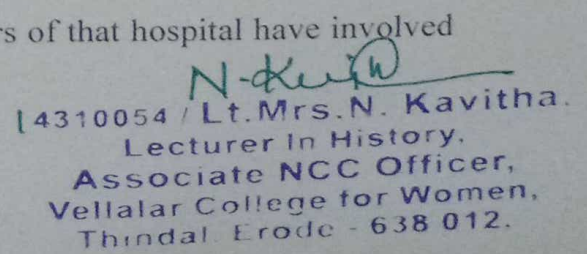 rs of that hospital have involved
N-Kavi
14310054 / Lt.Mrs.N. Kavitha.
Lecturer In History,
Associate NCC Officer,
Vellalar College for Women,
Thindal. Erode - 638 012.